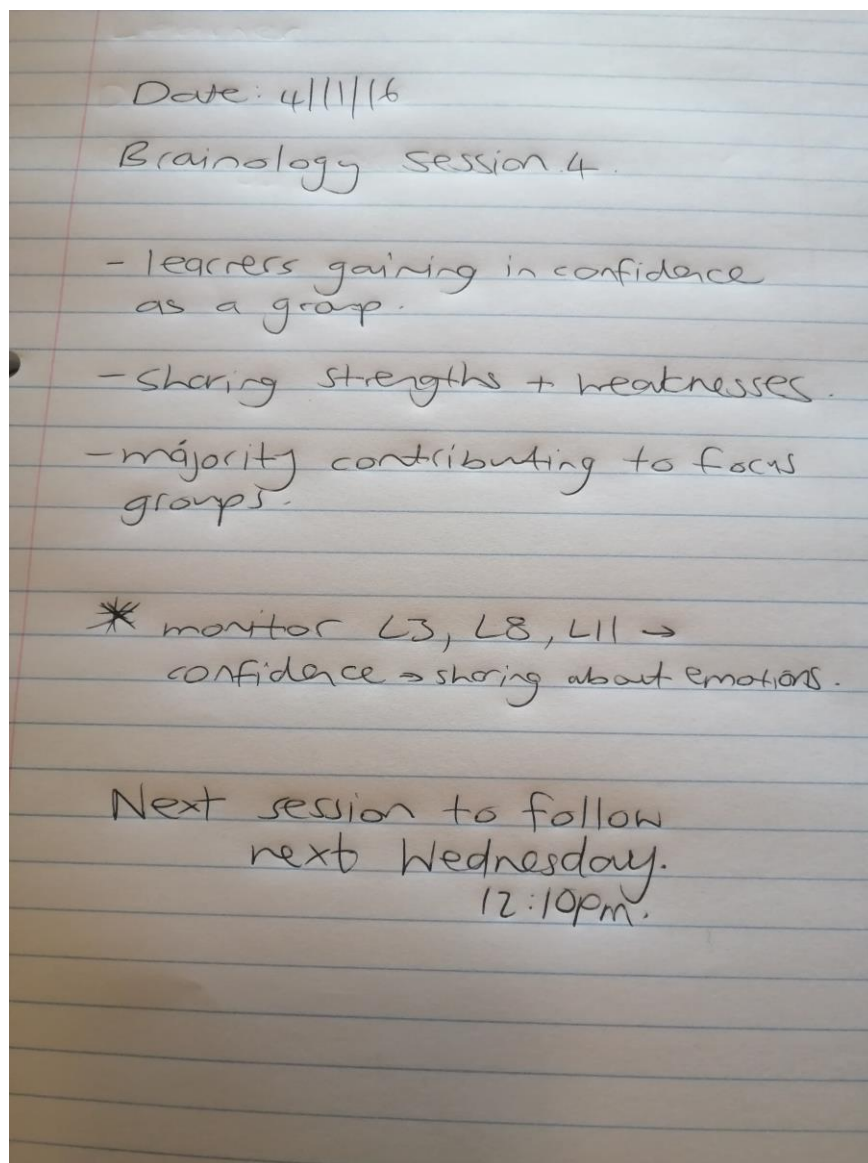 Date: 4/11/16
Brainology session 4.
- learners gaining in confidence
as a group.
- sharing strengths + weaknesses.
- majority contributing to focus
groups.
* monitor L3, L8, L11 →
confidence → sharing about emotions.
Next session to follow
next Wednesday.
12:10pm.